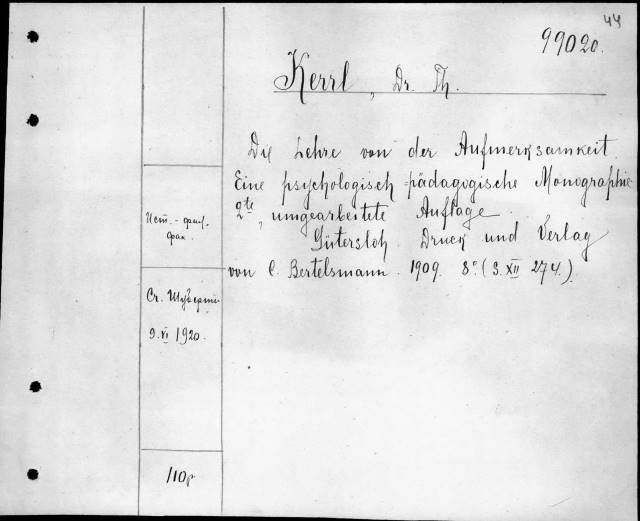 44
99020.
Kerrl, Dr. Th.
Die Lehre von der Aufmerksamkeit
Eine psychologisch-pädagogische Monographie
2te, umgearbeitete Auflage
Gütersloh. Druck und Verlag
von C. Bertelsmann. 1909. 8° (S. XII 274.)
Ист.-фил.
фак.
Ст. Шуберт
9.VI 1920.
110р